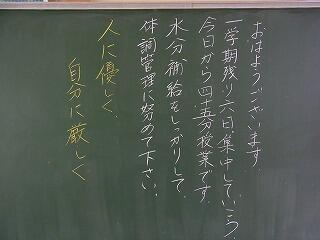 おはようございます。
一学期残り六日集中していこう
今日から四十五分授業です。
水分補給をしっかりして、
体調管理に努めて下さい。
人に優しく、
自分に厳しく